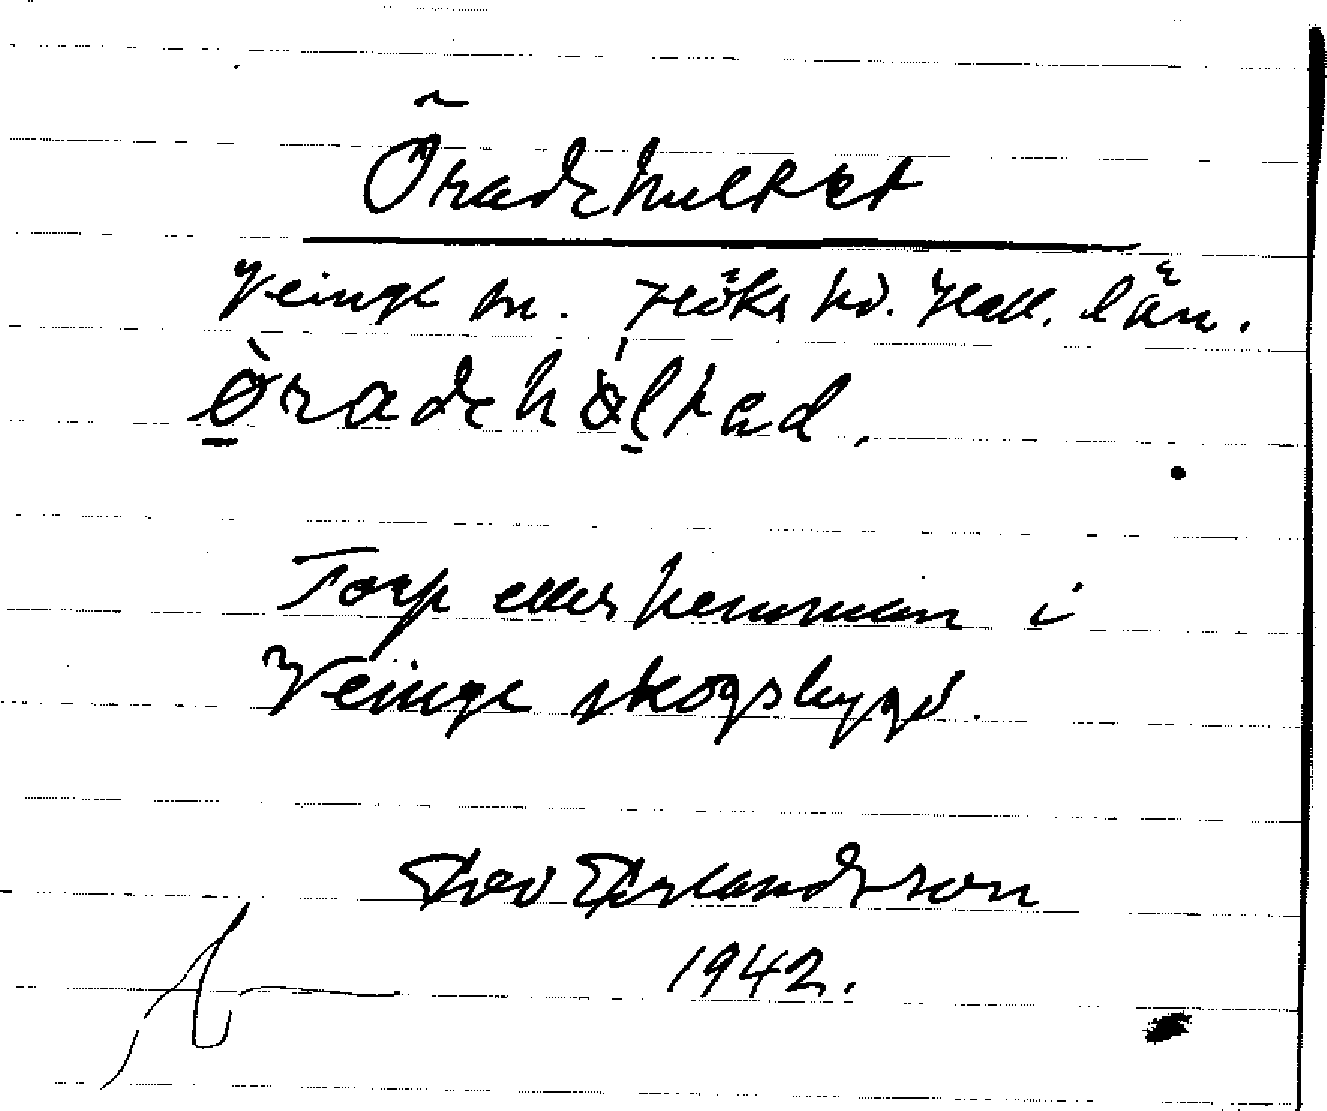 Öradehultet
Veinge sn. Höks hd. Hall. län.
Òradehöltad.
Torp eller hemman i
Veinge skogsbygd.
Theo Erlandsson
1942.